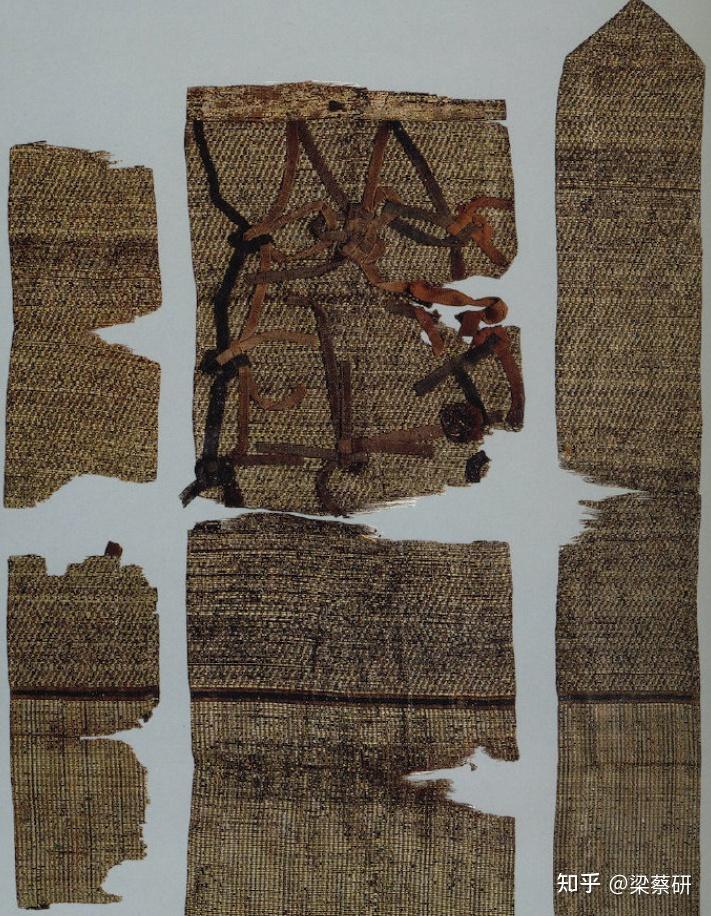 知乎 @梁蔡研